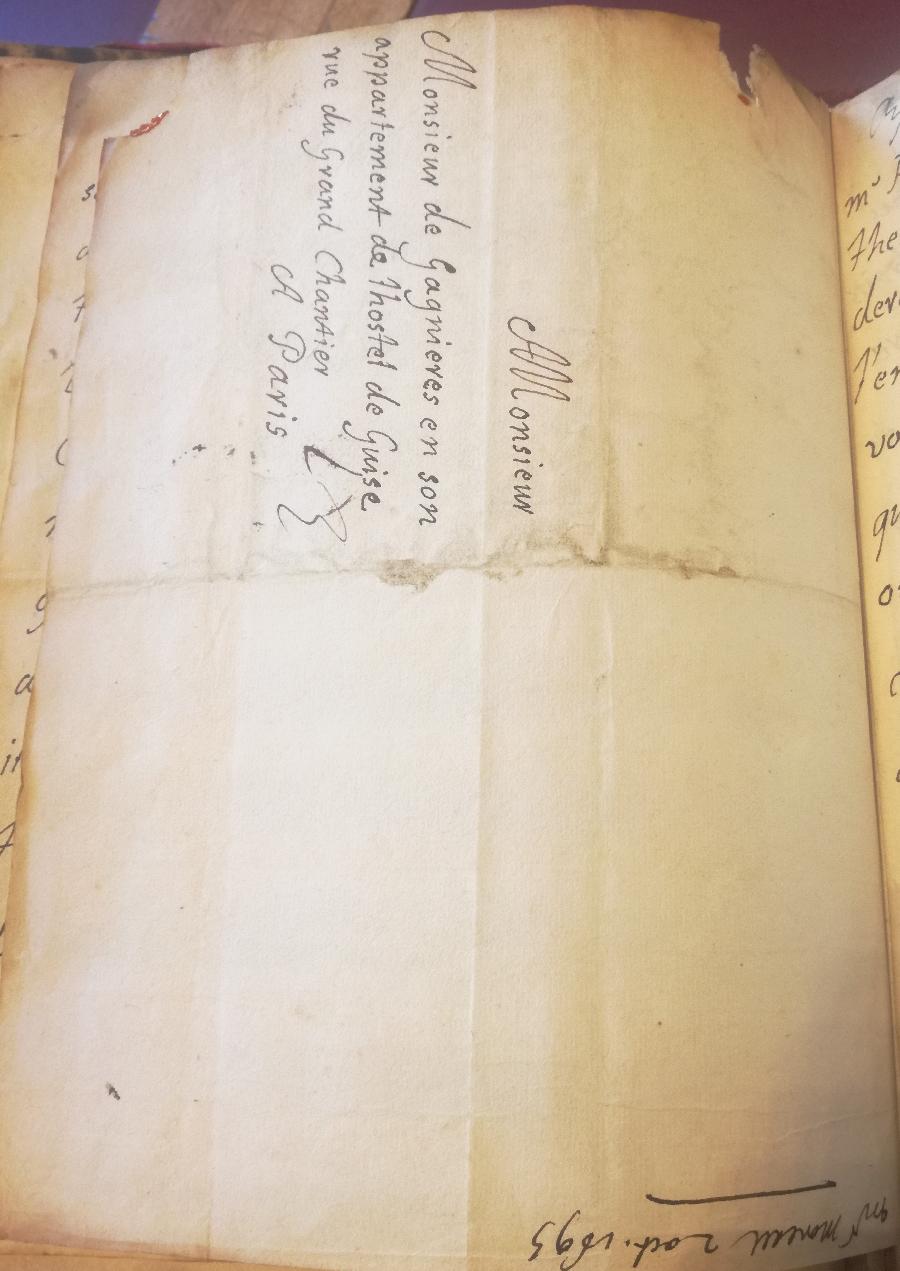 Monsieur
Monsieur de Gagnieres en son
appartement de lhostel de Guise
rue du Grand Chantier
A Paris
mr moreau 2 oct. 1693